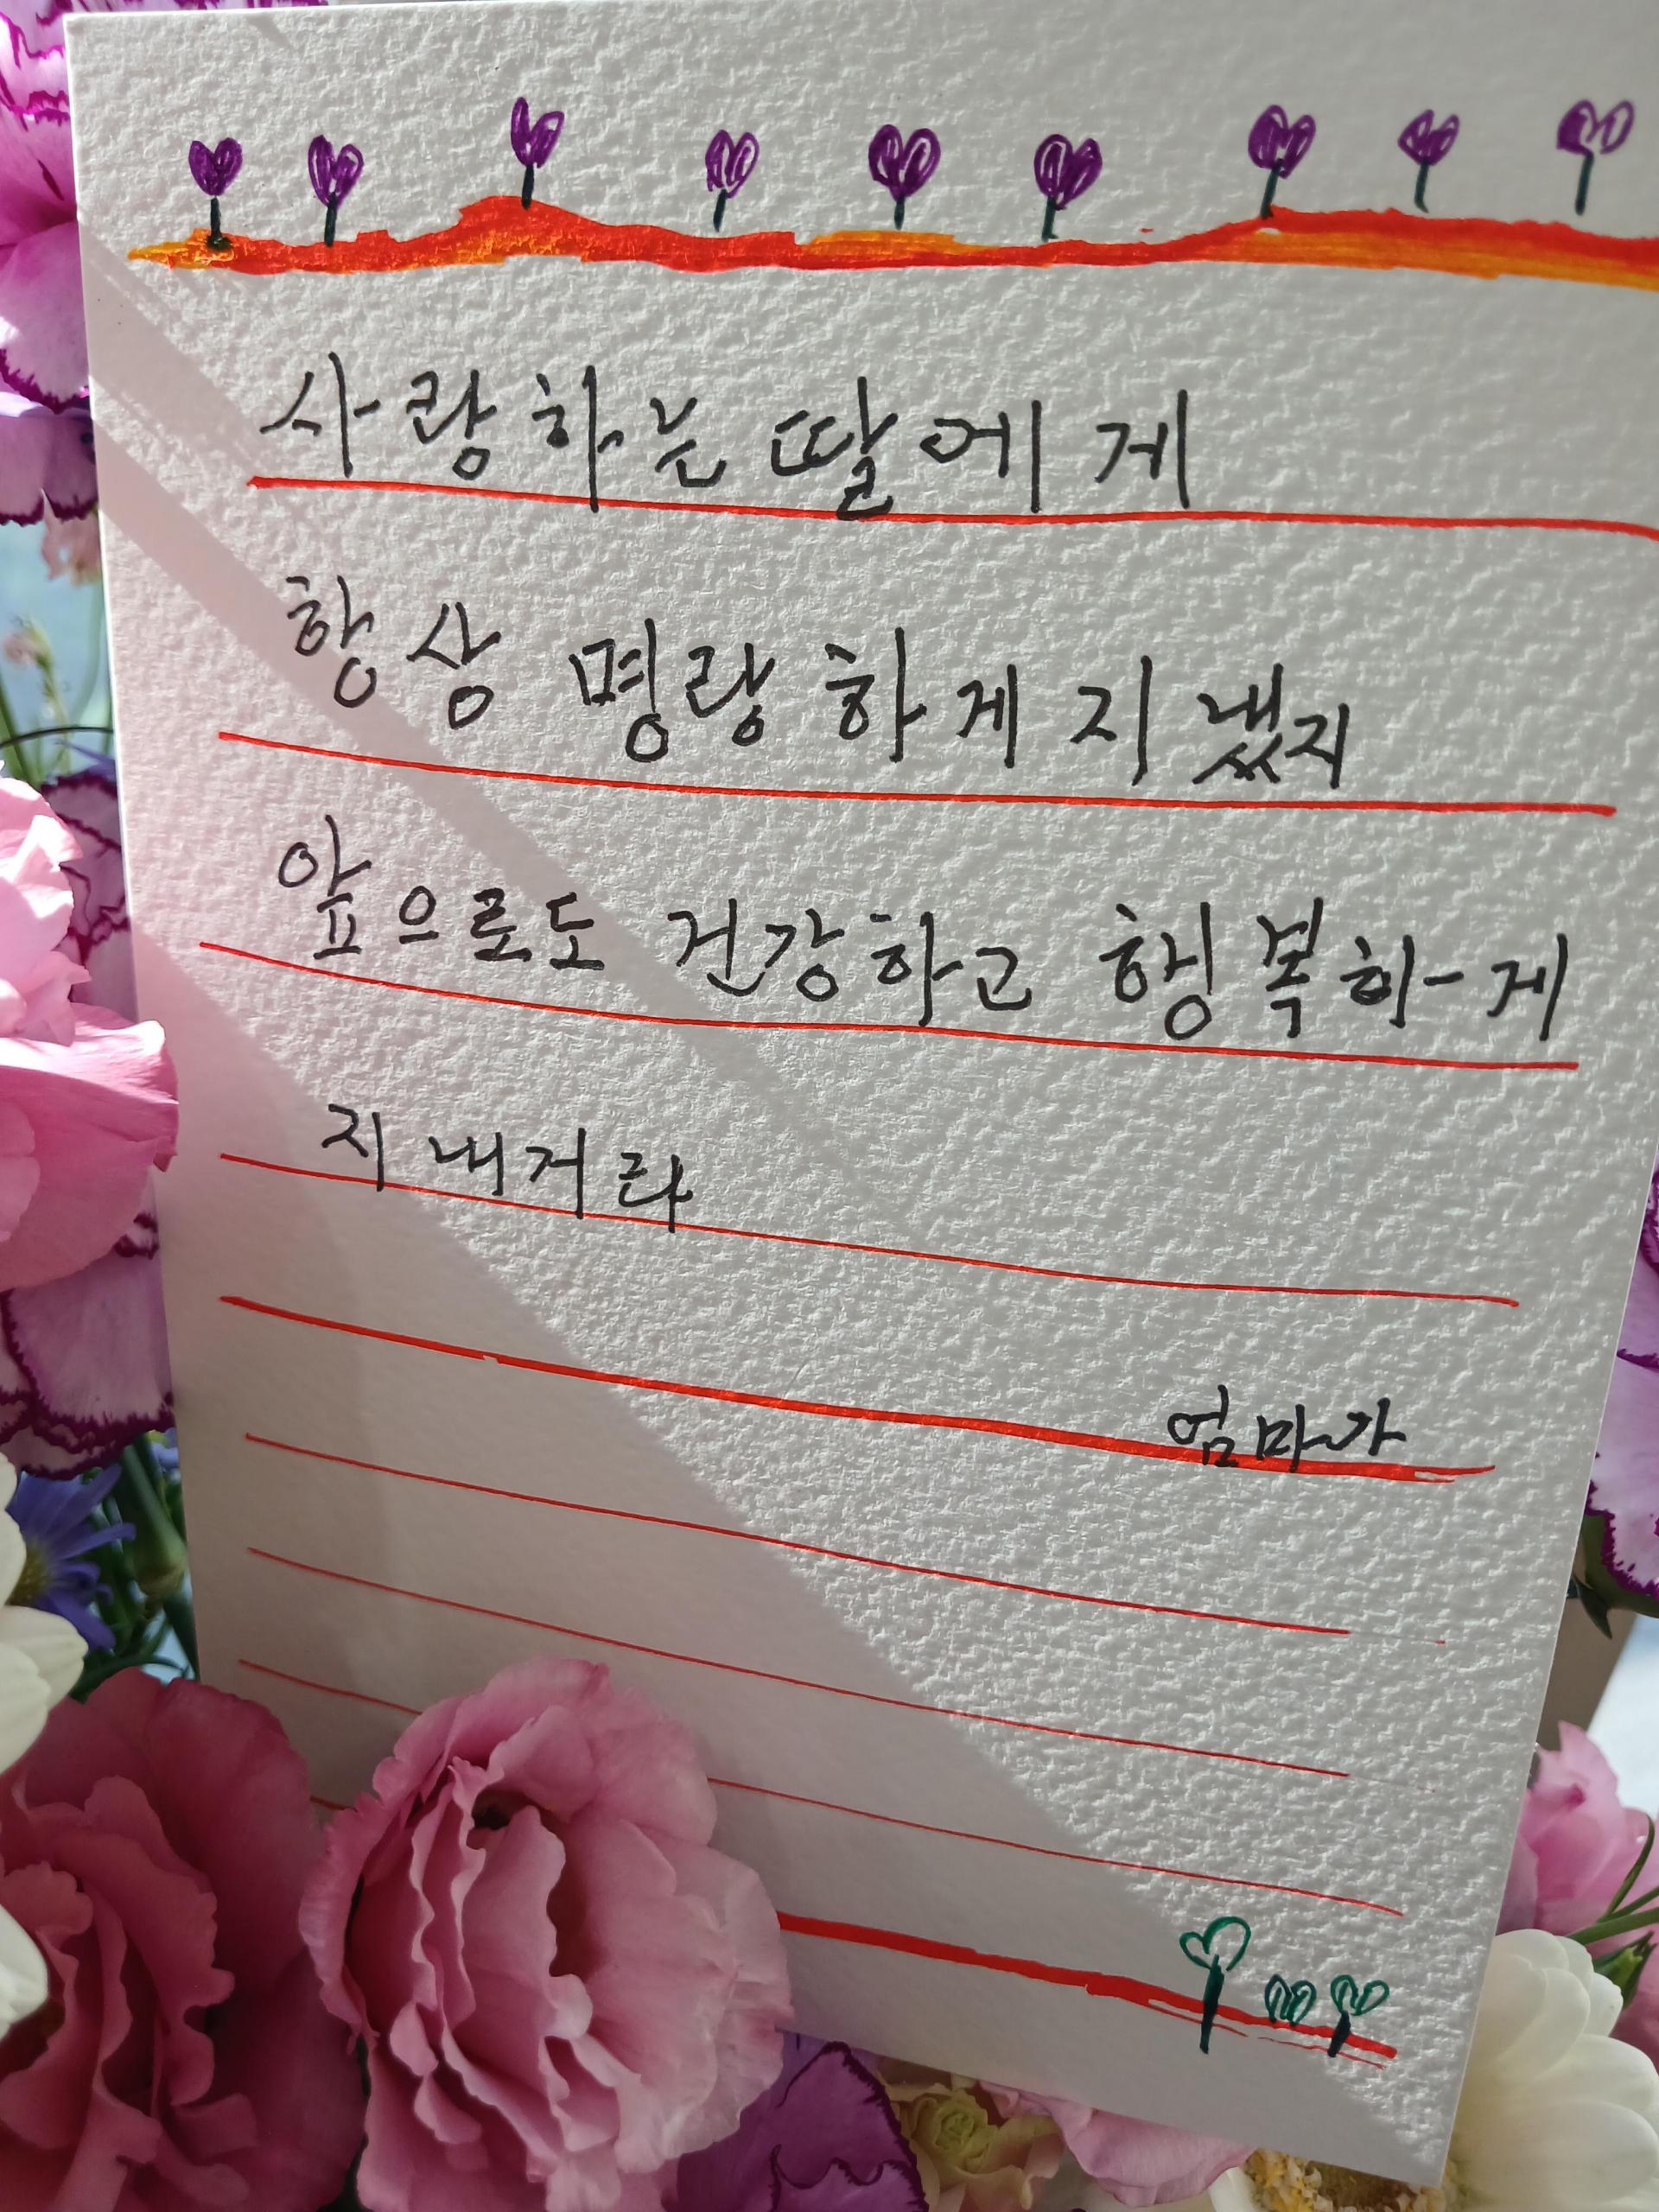 사랑하는 딸에게
항상 명랑하게 지냈지
앞으로도 건강하고 행복하게
지내거라
엄마가